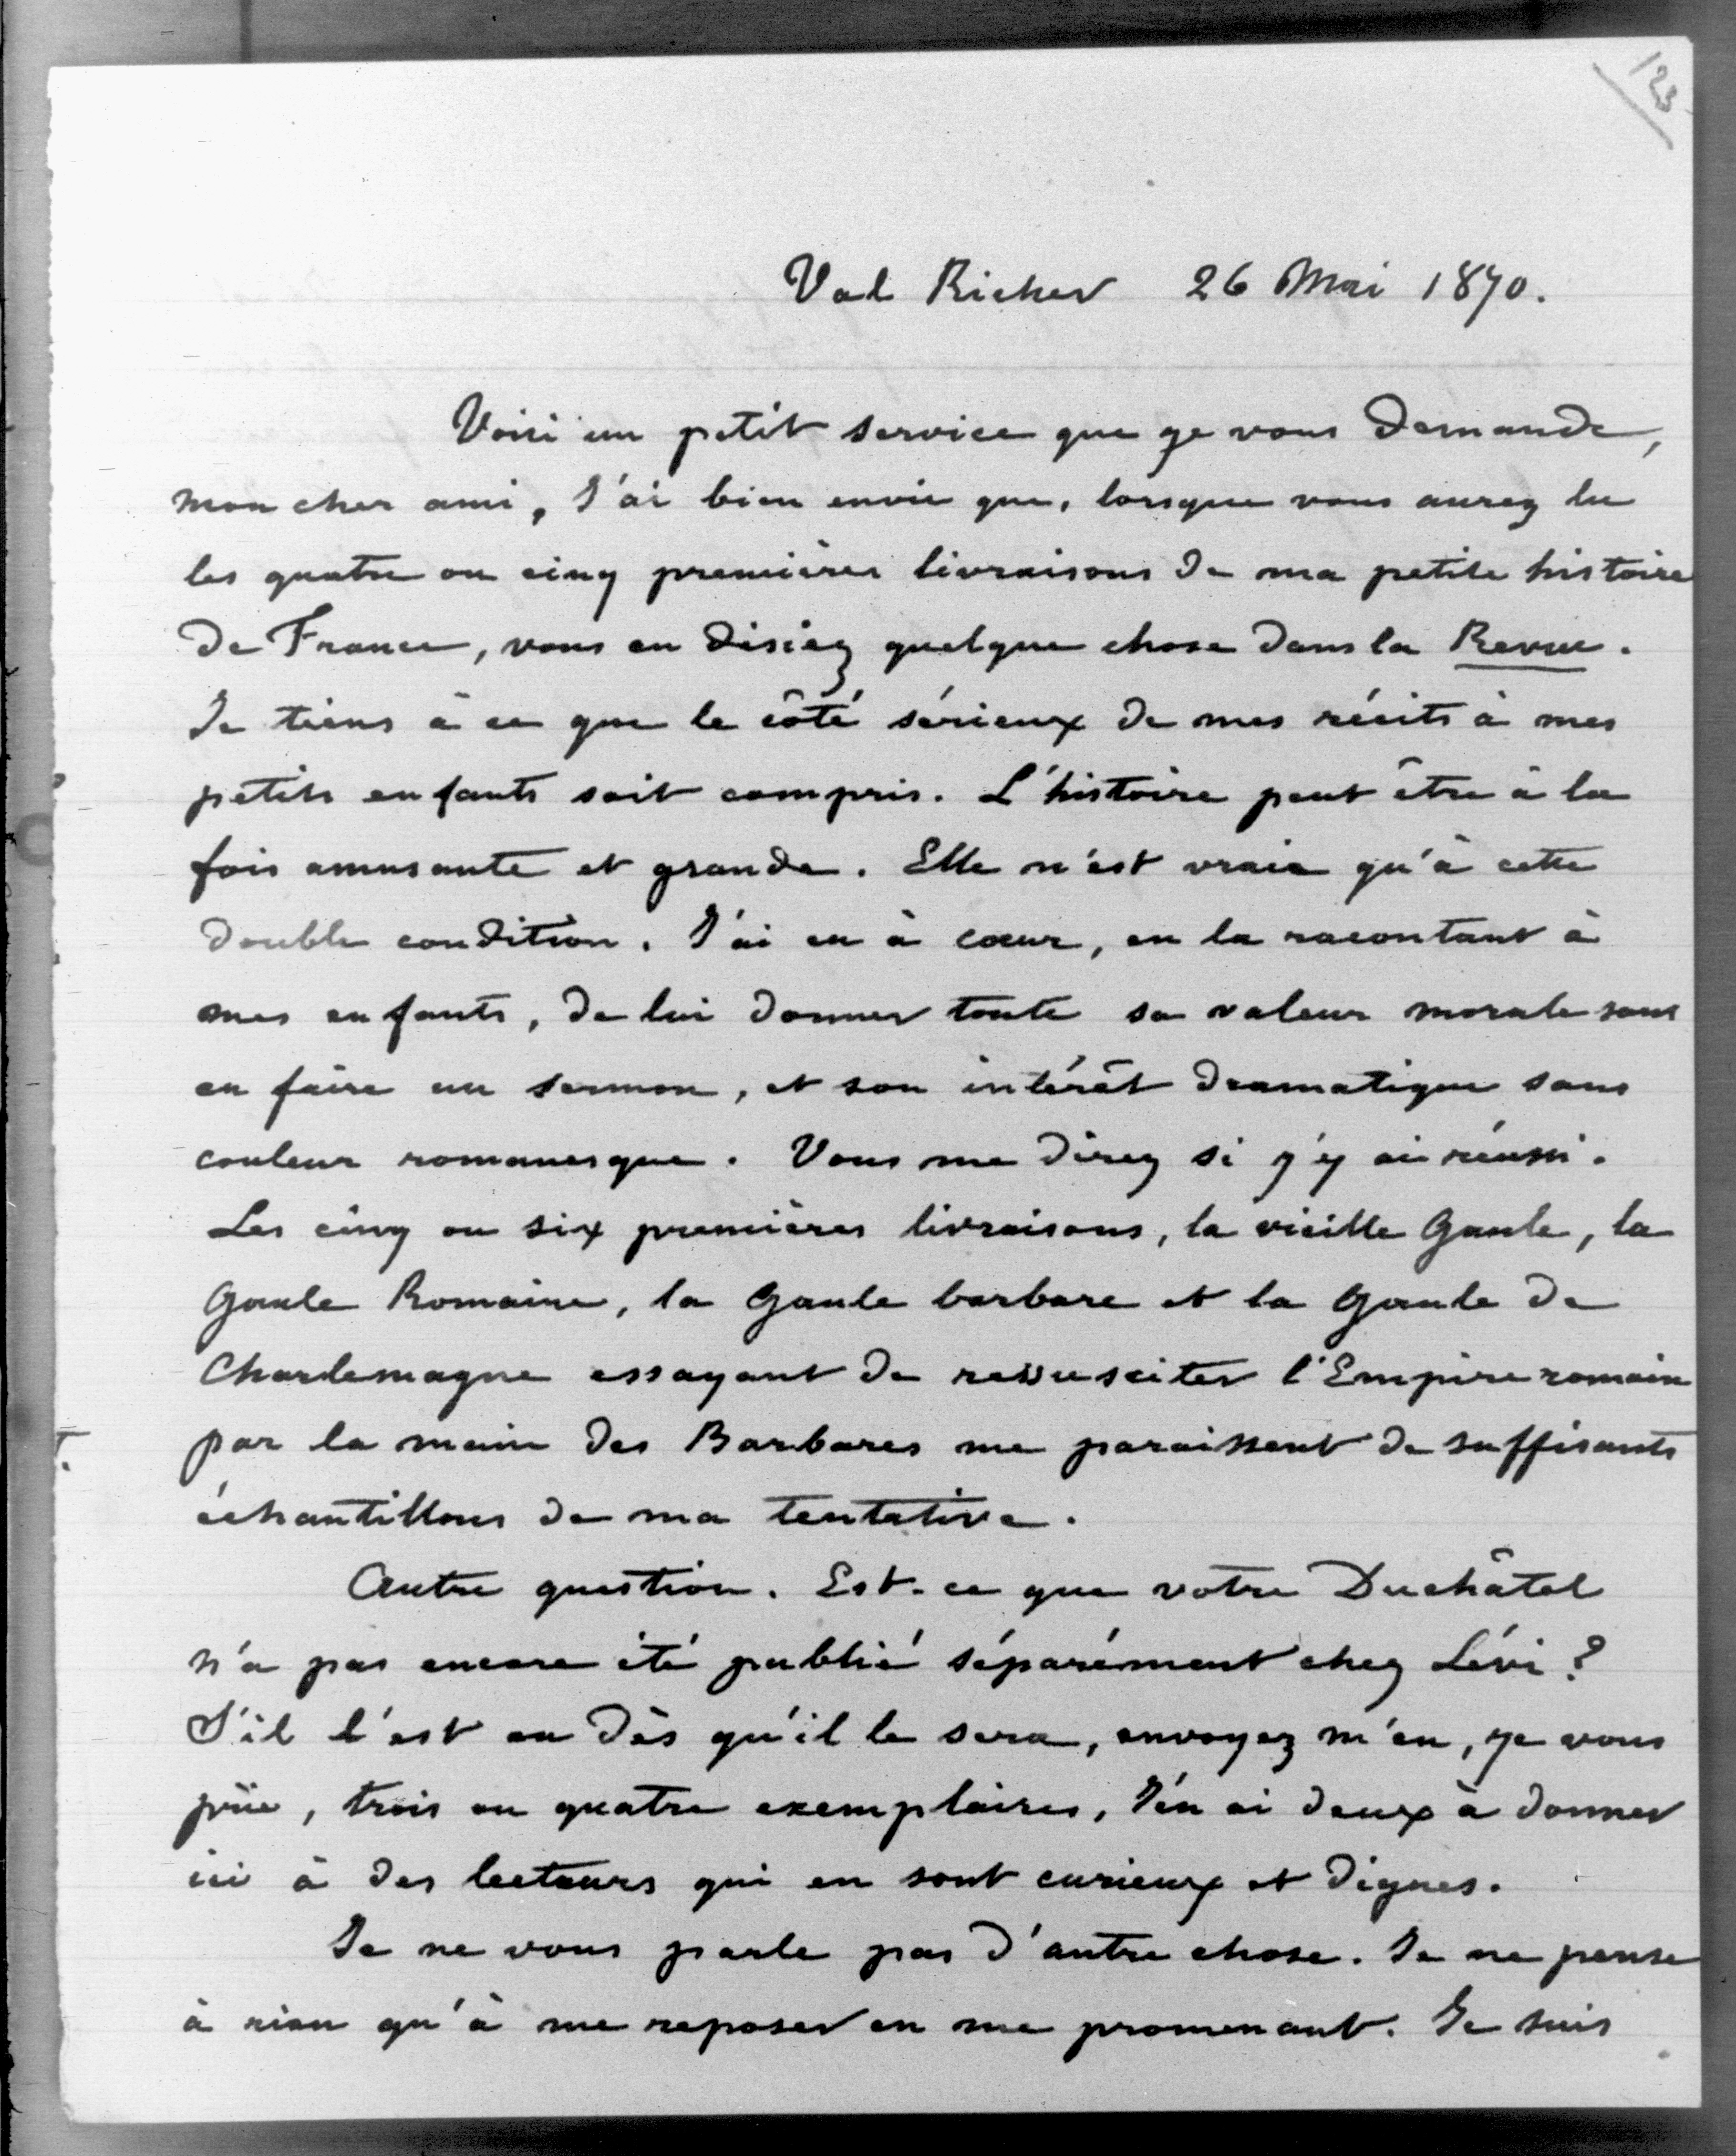 123
Val Richer 26 Mai 1870.
Voici un petit service que je vous demande,
mon cher ami, J'ai bien envie que, lorsque vous aurez lu
les quatre ou cinq premières livraisons de ma petite histoire
de France, vous en disiez quelque chose dans la Revue.
Je tiens à ce que le côté sérieux de mes récits à mes
petits enfants soit compris. L'histoire peut être à la
fois amusante et grande. Elle n'est vraie qu'à cette
double condition. J'ai eu à cœur, en la racontant à
mes enfants, de lui donner toute sa valeur morale sans
en faire un sermon, et son intérêt dramatique sans
couleur romanesque. Vous me direz si j'y ai réussi.
Les cinq ou six premières livraisons, la vieille Gaule, la
Gaule Romaine, la Gaule barbare et la Gaule de
Charlemagne essayant de ressusciter l'Empire romain
par la main des Barbares me paraissent de suffisants
échantillons de ma tentative.
Autre question. Est-ce que votre Duchâtel
n'a pas encore été publié séparément chez Lévi ?
S'il l'est ou dès qu'il le sera, envoyez m'en, je vous
prie, trois ou quatre exemplaires, J'en ai deux à donner
ici à des lecteurs qui en sont curieux et dignes.
Je ne vous parle pas d'autre chose. Je ne pense
à rien qu'à me reposer en me promenant. Je suis